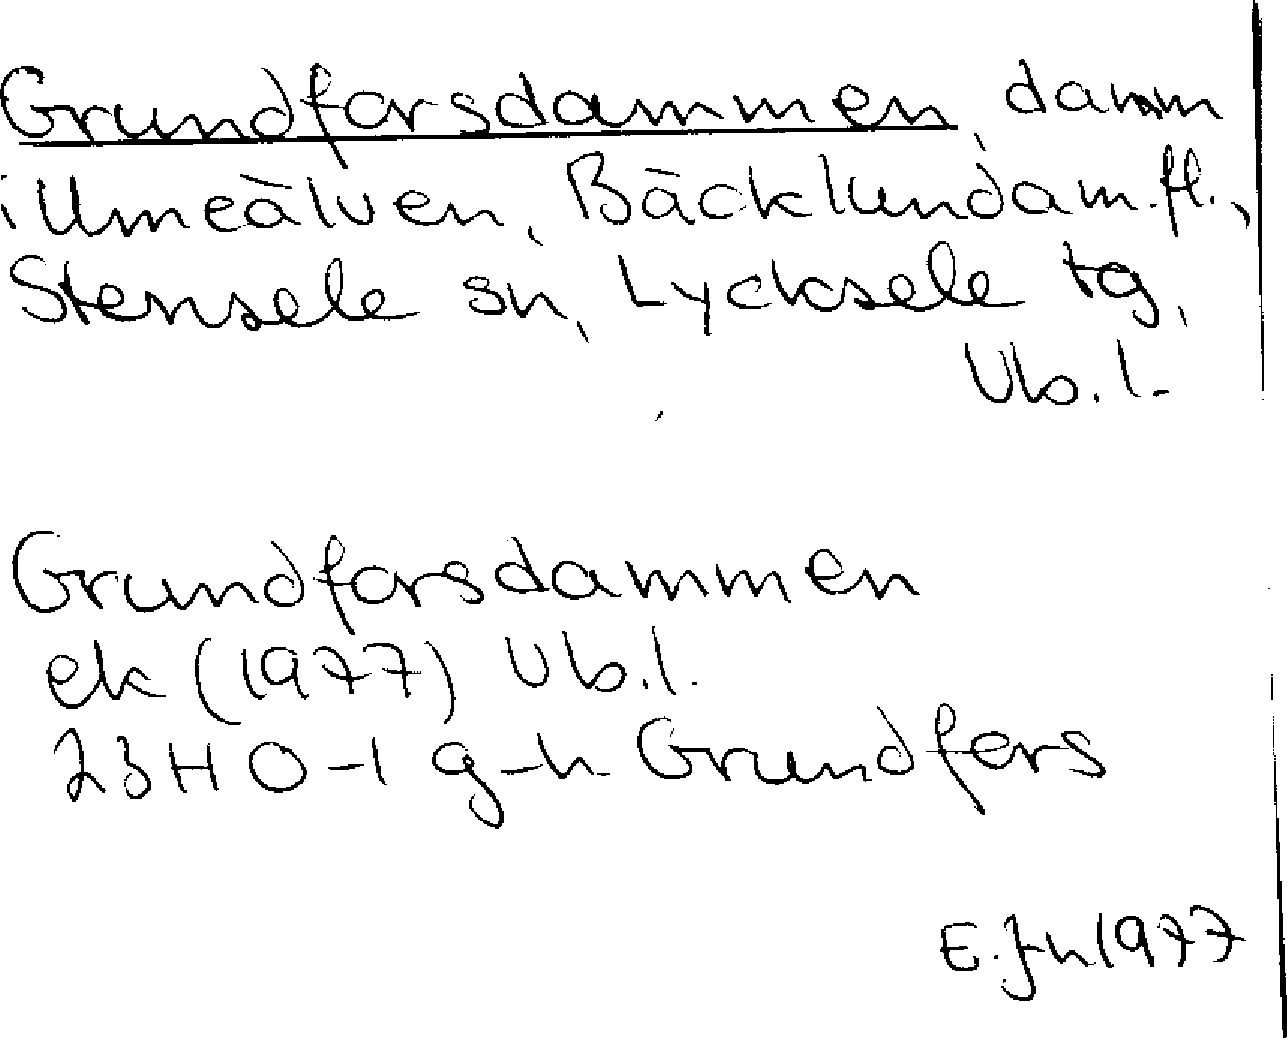 Grundforsdammen, damm
i Umeälven, Bäcklund a m. fl.,
Stensele sn, Lycksele tg,
Vb. l.
Grundforsdammen
ek (1977) Vb. l.
23H 0-1 g-h Grundfors
E. Jn 1977